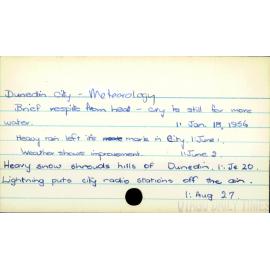 Dunedin City - Meteorology
Brief respite from heat - cry is still for more
water. 1: Jan. 18, 1956
Heavy rain left its mark in City. 1: June 1.
Weather shows improvement. 1: June 2.
Heavy snow shrouds hills of Dunedin. 1: Je 20.
Lightning puts city radio stations off the air.
1: Aug 27.
OTAGO DAILY TIMES